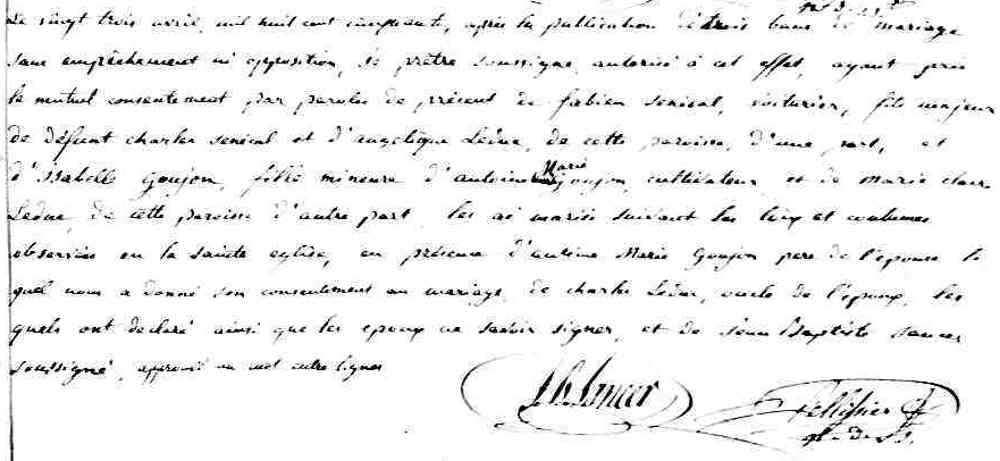 Le vingt trois avril, mil huit cent cinquante, après la publication de trois bans de mariage
sans empêchement ni opposition, le prêtre soussigné, autorisé à cet effet, ayant pris
le mutuel consentement par paroles de présent de fabien senécal, voiturier, fils majeur
de défunt charles senécal et d'angélique Leduc, de cette paroisse, d'une part, et
d'Isabelle Goujon, fille mineure d'antoine Marie goujon, cultivateur, et de Marie claire
Leduc de cette paroisse d'autre part, les ai mariés suivant les loix et coutumes
observées en la sainte eglise, en présence d'antoine Marie Goujon pere de l'épouse le
quel nous a donné son consentement au mariage, de charles Leduc, oncle de l'époux, les
quels ont déclaré ainsi que les epoux ne savoir signer, et de Jean Baptiste
soussigné, approuvé un mot entre lignes
Pellissier